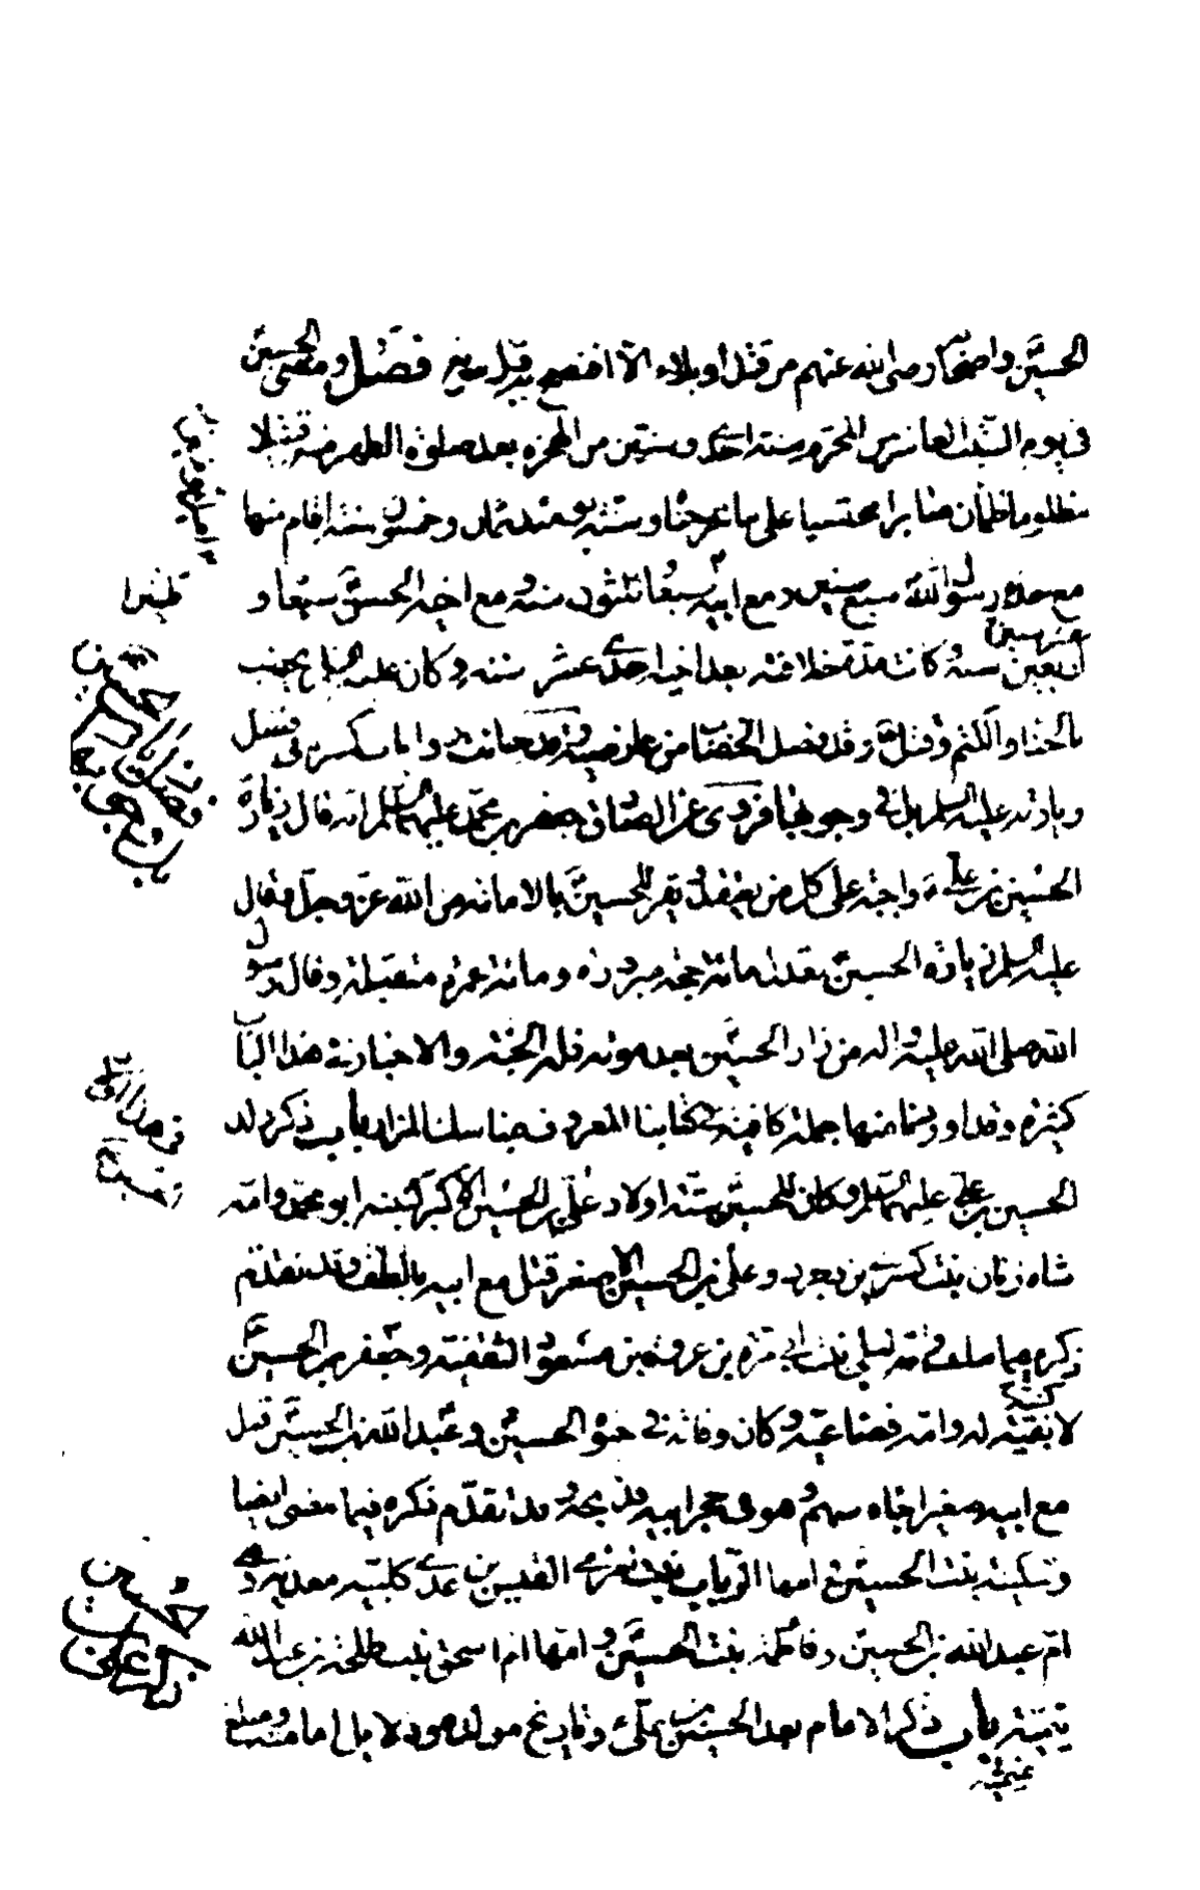 الحسين واصحابه رضي الله عنهم من قتل او بلاء الا افتضح به قبل فصل ومضى الحسين
في يوم السبت العاشر من المحرم سنة احدى وستين من الهجرة بعد صلوة الظهر منه قتيلا
مظلوما ظمان صابرا محتسبا على ما شرحناه وسنه يومئذ ثمان وخمسون سنة اقام منها
مع جده رسول الله سبع سنين ومع ابيه سبعا وثلثون سنة ومع اخيه الحسن سبعا و
اربعين سنة كانت مدة خلافته بعد اخيه احدى عشر سنة وكان عليه السلام يخضب
بالحناء والكتم وقتل وقد نصل الخضاب من عارضيه وقد جائت روايات كثيرة في فضل
زيارته عليه السلام بل في وجوبها فروى عن الصادق جعفر بن محمد عليهما السلام انه قال زيارة
الحسين بن علي واجبة على كل من يقر للحسين بالامامة من الله عز وجل وقال
عليه السلام زيارة الحسين تعدل مائة حجة مبرورة ومائة عمرة متقبلة وقال رسول
الله صلى الله عليه واله من زار الحسين بعد موته فله الجنة والاخبار في هذا الباب
كثيرة وقد اوردنا منها جملة كافية في كتابنا المعروف بمناسك المزار باب ذكر ولد
الحسين بن علي عليهما السلم وكان للحسين ستة اولاد علي بن الحسين الاكبر كنيته ابو محمد وامه
شاه زنان بنت كسرى يزدجرد وعلي بن الحسين الاصغر قتل مع ابيه بالطف وقد تقدم
ذكره فيما سلف وامه ليلى بنت ابي مرة بن عروة بن مسعود الثقفية وجعفر بن الحسين
لا بقية له وامه قضاعية وكان وفاته في حيوة الحسين وعبد الله بن الحسين قتل
مع ابيه صغيرا جاءه سهم وهو في حجر ابيه فذبحه وقد تقدم ذكره فيما مضى ايضا
وسكينة بنت الحسين وامها الرباب بنت امرئ القيس بن عدي كلبية معدية وهي
ام عبد الله بن الحسين وفاطمة بنت الحسين وامها ام اسحق بنت طلحة بن عبد الله
تيمية باب ذكر الامام بعد الحسين بن علي وتاريخ مولده ودلايل امامته ومبلغ